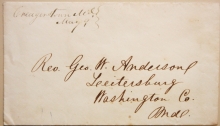 Georgetown
May
Rev. Geo. W. Anderson
Leitersburg
Washington Co.
Md.